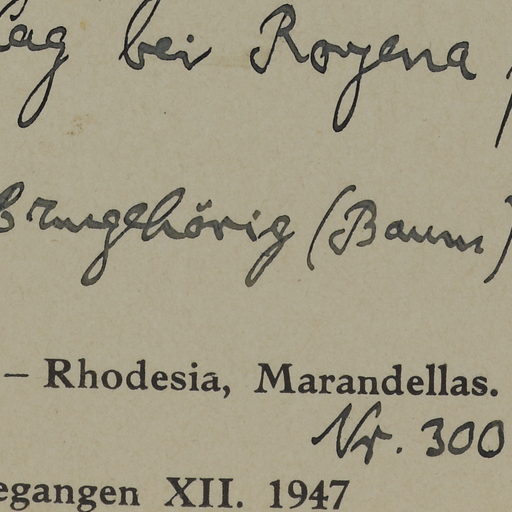 lag bei Royena
zugehörig (Baum)
– Rhodesia, Marandellas.
Nr. 300
egangen XII. 1947